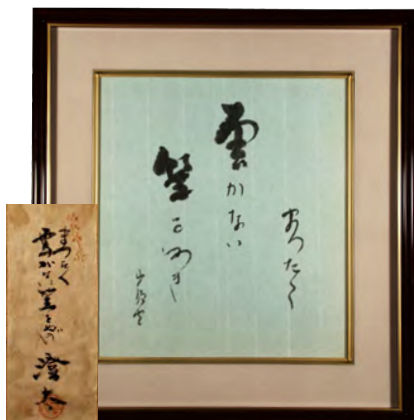 まつたく
雲かない
笠をぬき
山頭火
まつたく
雲がない笠をぬぎ
澄太